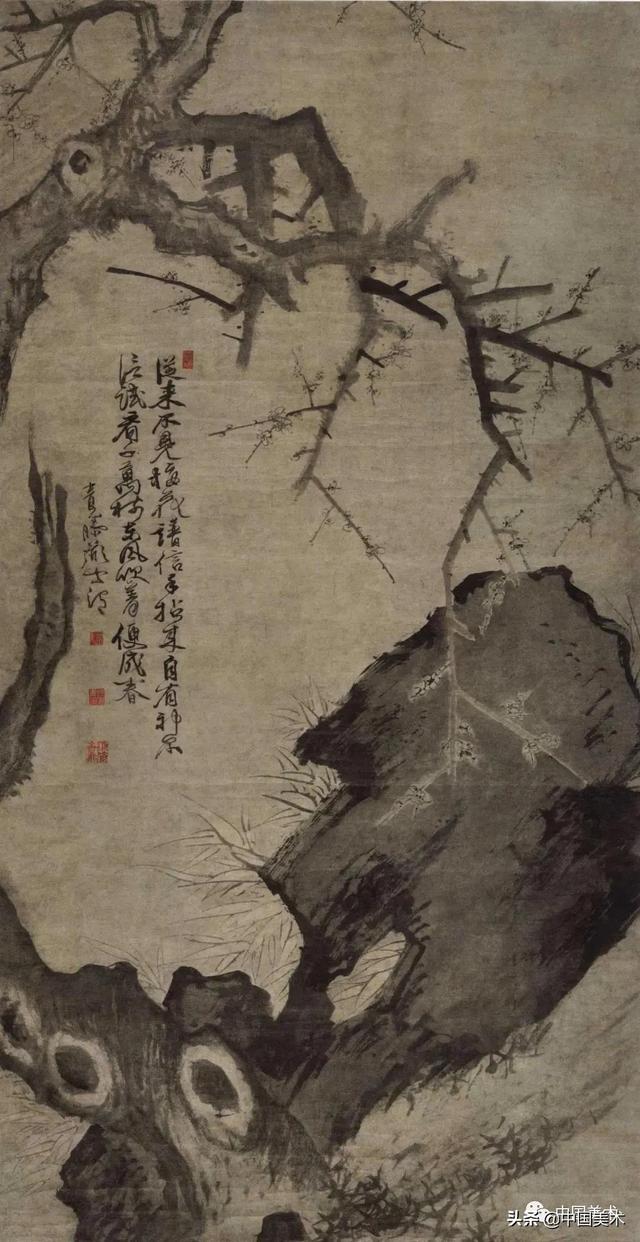 從来不見梅花譜信手拈来自有神不
信試看千萬樹東風吹着便成春
青藤道士渭
中国美术
头条@中国美术